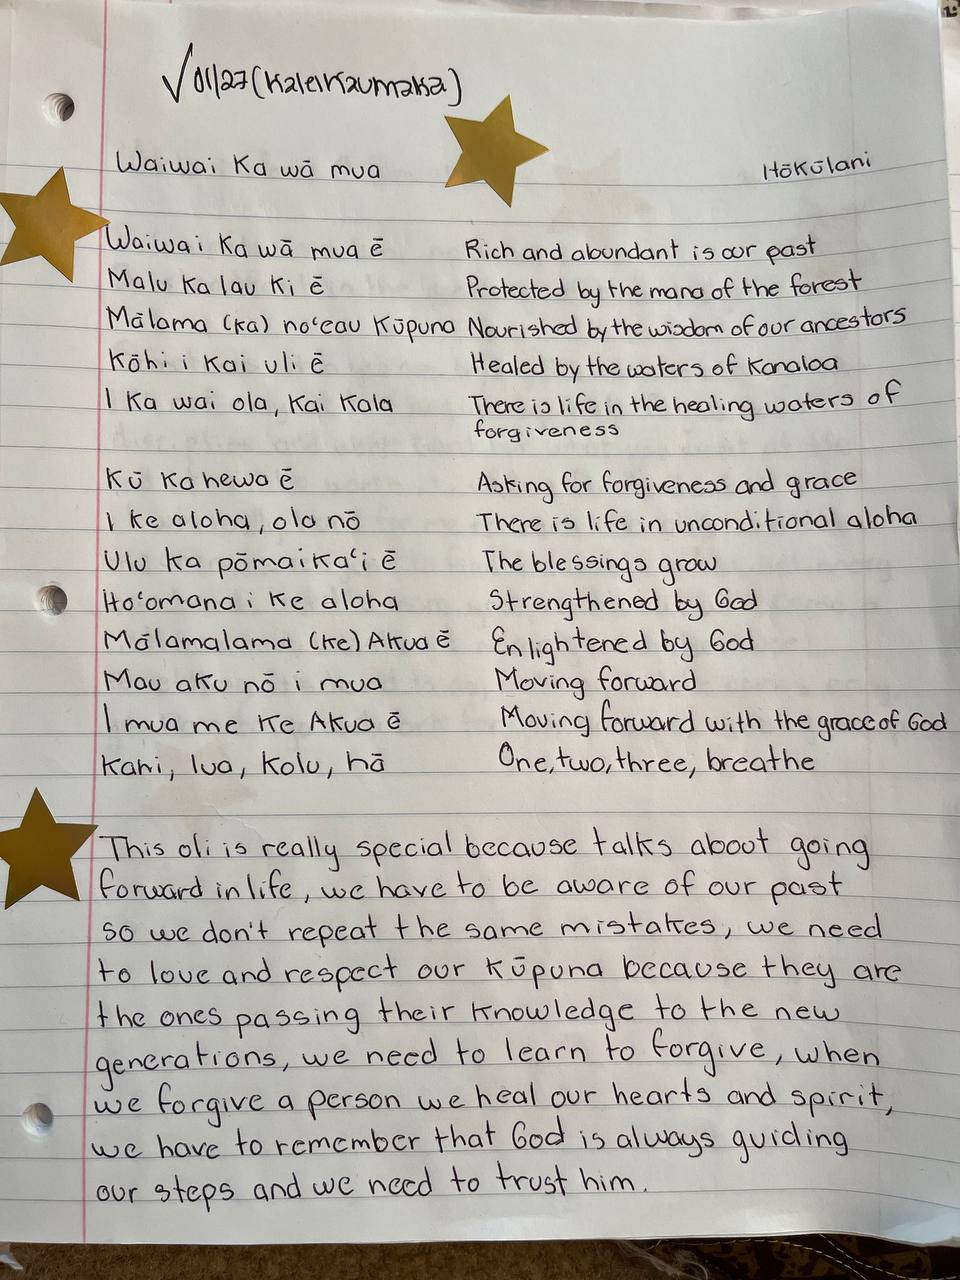 √01/27(Kaleikaumaka)
Waiwai Ka wā mua Hōkūlani
Waiwai Ka wā mua ē Rich and abundant is our past
Malu Ka lau Ki ē Protected by the mana of the forest
Mālama (ka) no'eau Kūpuna Nourished by the wisdom of our ancestors
Kōhi i Kai uli ē Healed by the waters of Kanaloa
I Ka wai ola, Kai Kala There is life in the healing waters of
forgiveness
Kū Ka hewa ē Asking for forgiveness and grace
I Ke aloha, ola nō There is life in unconditional aloha
Ulu Ka pōmaika'i ē The blessings grow
Ho'omana i Ke aloha Strengthened by God
Mālamalama (Ke) Akua ē Enlightened by God
Mau aku nō i mua Moving forward
I mua me Ke Akua ē Moving forward with the grace of God
Kahi, lua, Kolu, hā One, two, three, breathe
This oli is really special because talks about going
forward in life, we have to be aware of our past
so we don't repeat the same mistakes, we need
to love and respect our Kūpuna because they are
the ones passing their Knowledge to the new
generations, we need to learn to forgive, when
we forgive a person we heal our hearts and spirit,
we have to remember that God is always guiding
our steps and we need to trust him.